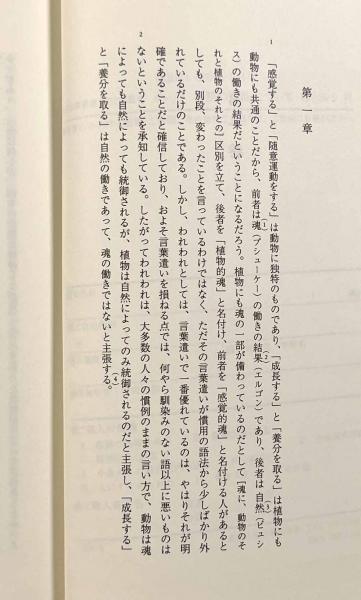 第一章
1
「感覚する」と「随意運動をする」は動物に独特のものであり、「成長する」と「養分を取る」は植物にも
動物にも共通のことだから、前者は魂(プシューケー)(1)の働きの結果(エルゴン)(2)であり、後者は自然(ピュシ
ス)(3)の働きの結果だということになるだろう。植物にも魂の一部が備わっているのだとして[魂に、動物のそ
れと植物のそれとの]区別を立て、後者を「植物的魂」と名付け、前者を「感覚的魂」と名付ける人があると
しても、別段、変わったことを言っているわけではなく、ただその言葉遣いが慣用の語法から少しばかり外
れているだけのことである。しかし、われわれとしては、言葉遣いで一番優れているのは、やはりそれが明
確であることだと確信しており、およそ言葉遣いを損ねる点では、何やら馴染みのない語以上に悪いものは
ないということを承知している。したがってわれわれは、大多数の人々の慣例のままの言い方で、動物は魂
2
によっても自然によっても統御されるが、植物は自然によってのみ統御されるのだと主張し、「成長する」
と「養分を取る」は自然の働きであって、魂の働きではないと主張する。(4)